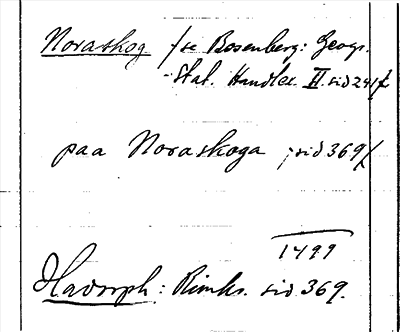 Noraskog /se Rosenberg: Geogr.
-Stat. Handlex. II. sid 241/
paa Noraskoga ; sid 369/
1499
Hadorph: Rimkr. sid 369.